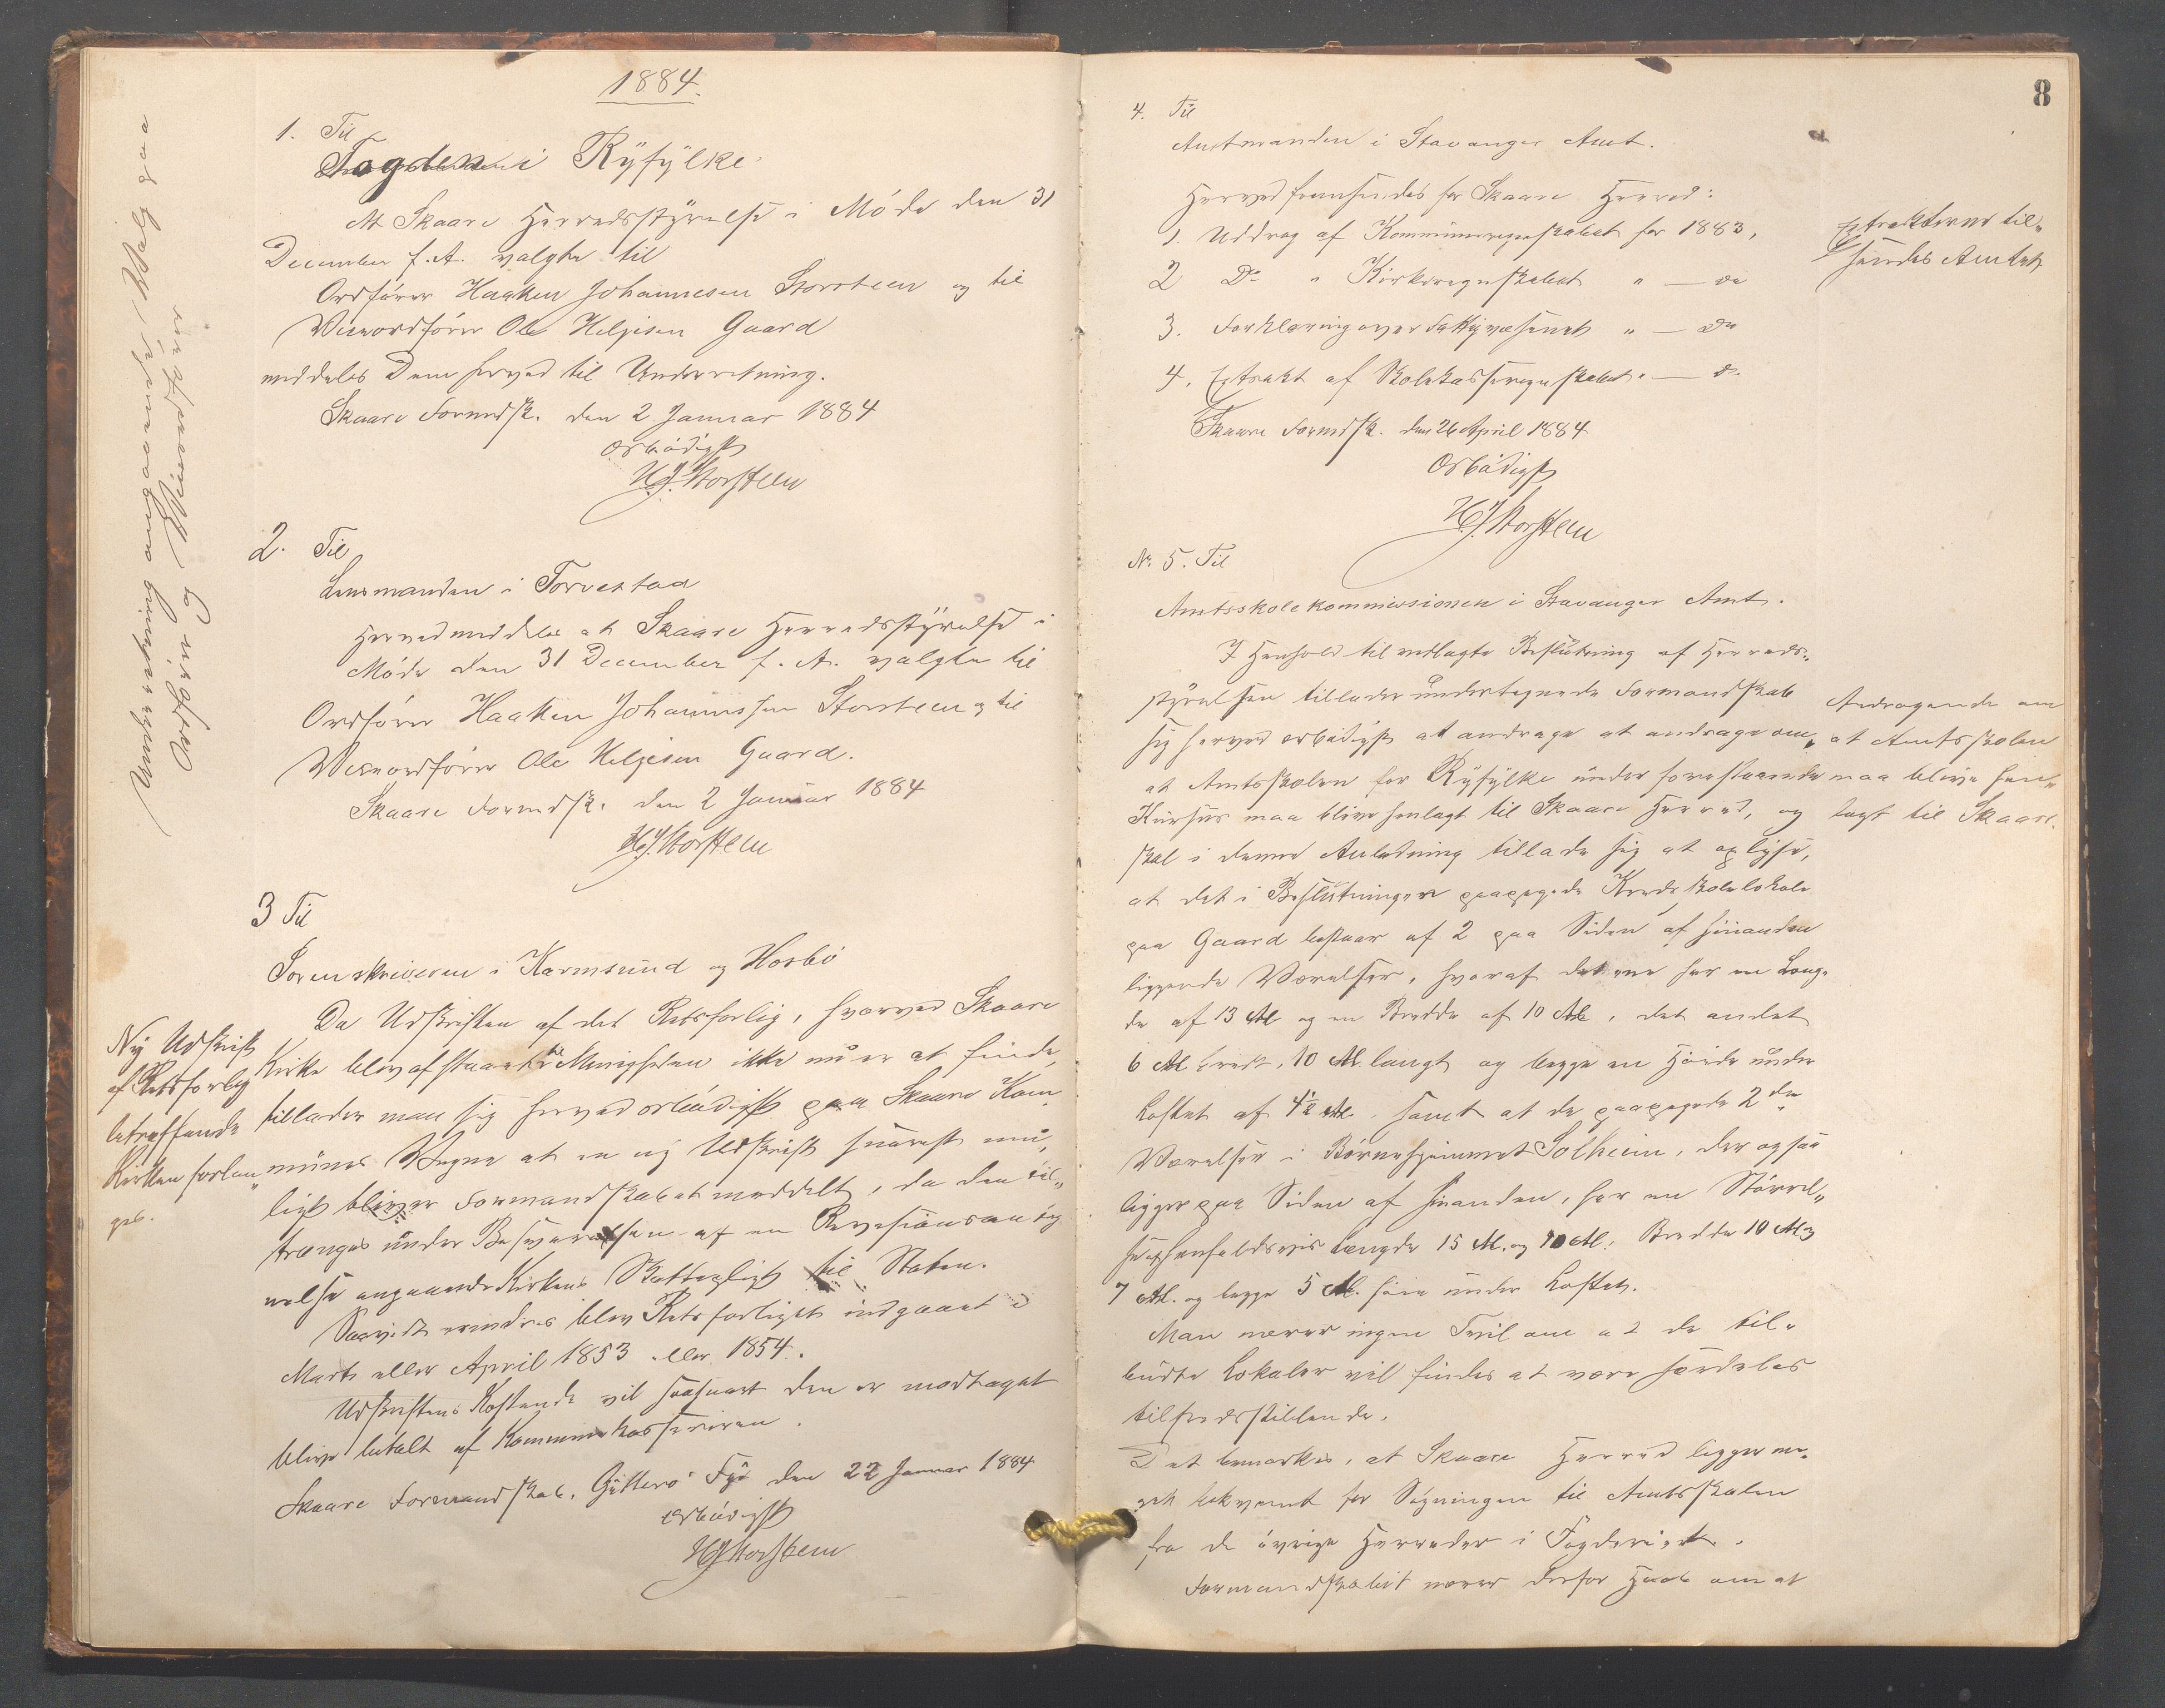 1884.
1. Til
Fogden i Ryfylke
At Skaare Herredsstyrelse i Møde den 31
December f. A. valgte til
Ordfører Haaken Johannesen Storsteen og til
Viceordfører Ole Helgesen Gaard
meddeles Dem herved til Underretning.
Skaare Formdsk. den 2 Januar 1884
Ærbødigst
H. J. Storsteen
Underretning angaaende Valg paa
Ordfører og Viceordfører
2. Til
Lensmanden i Torvestad
Herved meddeles at Skaare Herredsstyrelse i
Møde den 31 December f. A. valgte til
Ordfører Haaken Johannessen Storsteen og til
Viceordfører Ole Helgesen Gaard.
Skaare Formdsk. den 2 Januar 1884
H. J. Storsteen
3 Til
Sorenskriveren i Karmsund og Hesbø
Da Udskriften af det Retsforlig, hvorved Skaare
Kirke blev afstaaet til Menigheden ikke nu er at finde,
tillader man sig herved ærbødigst paa Skaare Kom¬
munes Vegne at en ny Udskrift snarest mu¬
ligt bliver Formandskabet meddelt, da den til¬
trænges under Besvarelsen af en Revisionsanteg
nelse angaaende Kirkens Skattepligt til Staten.
Saavidt erindres blev Retsforliget indgaaet i
Marts eller April 1853 eller 1854.
Udskriftens Kostende vil saasnart den er modtaget
blive betalt af Kommunekassereren.
Skaare Formandskab, Gitterø Fyr den 22 Januar 1884
Ærbødigst
H J Storsteen
Ny Udskrift
af Retsforlig
betræffende
Kirken forlan¬
ges.
8
4. Til
Amtmanden i Stavanger Amt.
Herved fremsendes for Skaare Herred:
1. Uddrag af Kommuneregnskabet for 1883,
2 Do " Kirkeregnskabet " — do
3. Forklaring over Fattigvæsenet " — do
4. Extrakt af Skolekasseregnskabet " — do
Skaare Formdsk. den 26 April 1884
Ærbødigst
H. J. Storsteen
Extrakterne til¬
sendes Amtet
No 5. Til
Amtsskolekommissionen i Stavanger Amt.
I Henhold til vedlagte Beslutning af Herreds¬
styrelsen tillader undertegnede Formandskab
sig herved ærbødigst at andrage at andrage om,
at Amtsskolen for Ryfylke under forestaaende
Kursus maa blive henlagt til Skaare Herred, og
skal i denne Anledning tillade sig at oplyse,
at det i Beslutningen paapegede Kredsskolelokale
paa Gaard bestaar af 2 paa Siden af hinanden
liggende Værelser, hvoraf det ene har en Læng¬
de af 13 Al og en Bredde af 10 Al, det andet
6 Al bredt, 10 Al. langt og begge en Høide under
Loftet af 4½ Al. samt at de paapegede 2de
Værelser i Børnehjemmet Solheim, der ogsaa
ligger paa Siden af hinanden, har en Størrel¬
se, henholdsvis Længde 15 Al. og 10 Al., Bredde 10 Al og
7 Al. og begge 5 Al. høie under Loftet.
Man nærer ingen Tvil om at de til¬
budte Lokaler vil findes at være særdeles
tilfredsstillende.
Det bemærkes, at Skaare Herred ligger me¬
get bekvemt for Søgningen til Amtsskolen
fra de øvrige Herreder i Fogderiet.
Formandskabet nærer derfor Haab om at
Andragende om
at Amtsskolen
maa blive hen¬
lagt til Skaare.